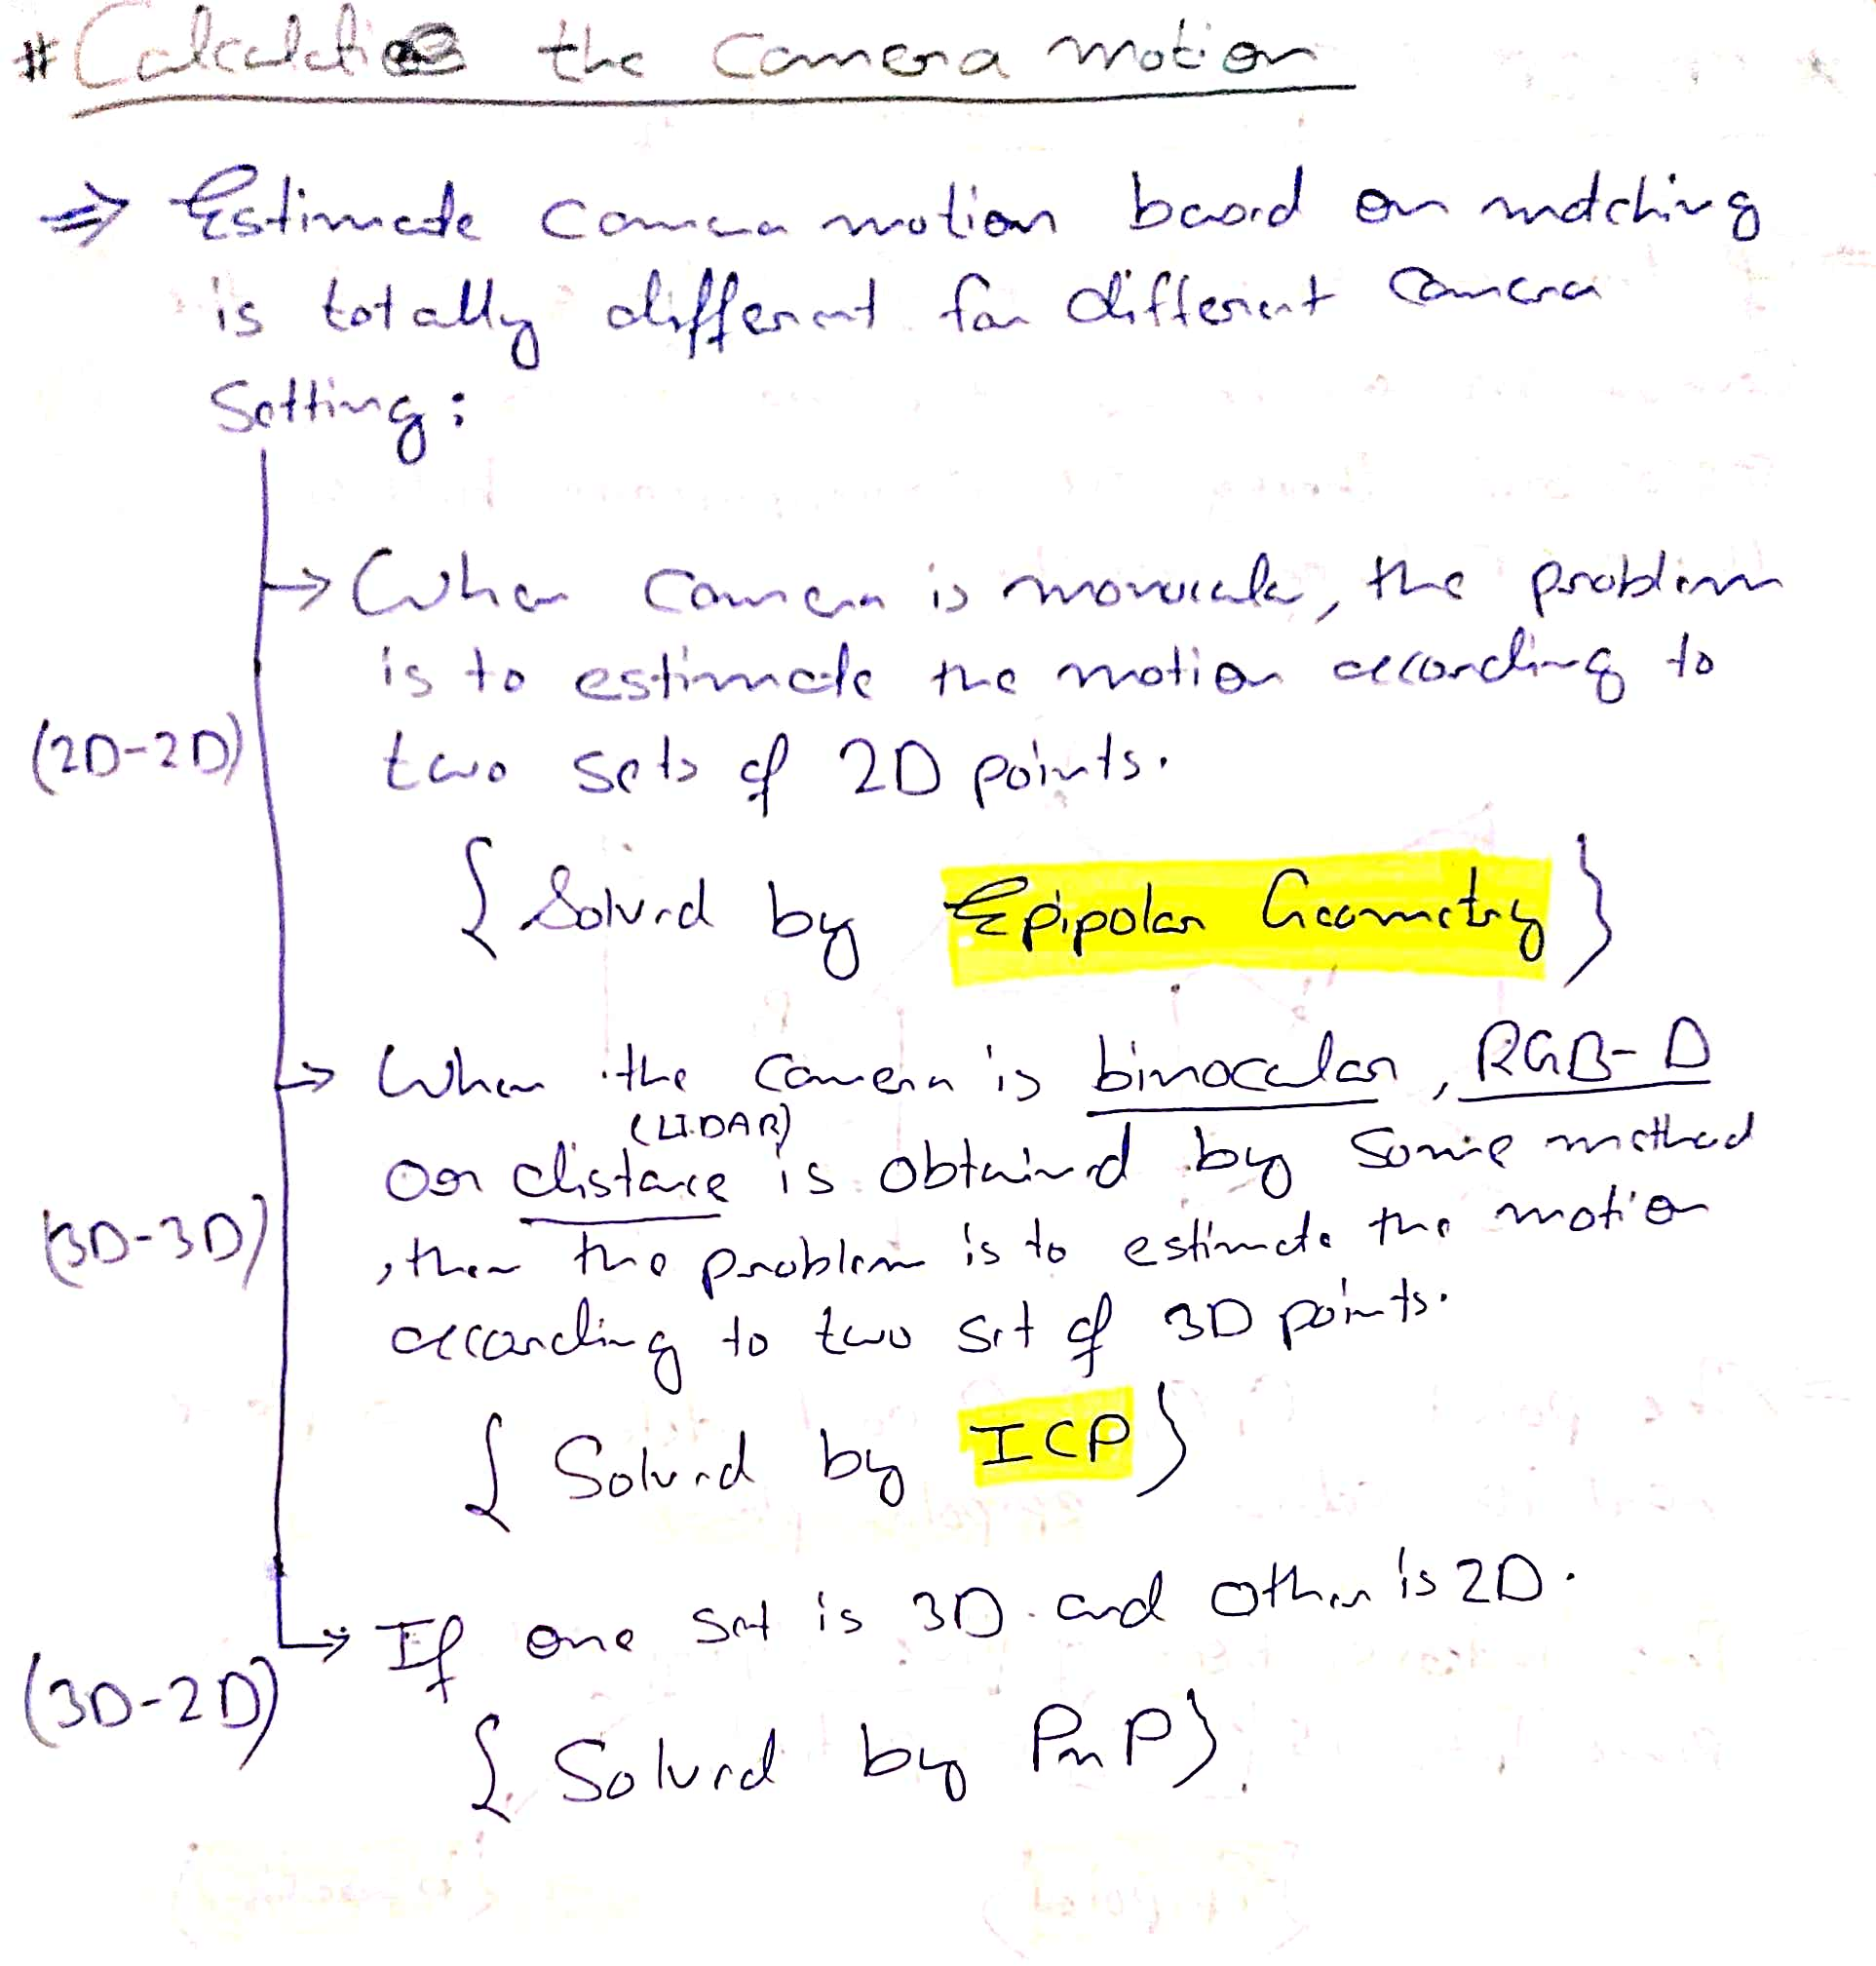 # Calculating the camera motion
⇒ Estimate camera motion based on matching
is totally different for different camera
Setting:
→ When camera is monocular, the problem
is to estimate the motion according to
(2D-2D) two sets of 2D points.
{ Solved by Epipolar Geometry }
→ When the camera is binocular, RGB-D
(LIDAR)
or distance is obtained by some method
(3D-3D) , then the problem is to estimate the motion
according to two set of 3D points.
{ Solved by ICP }
→ If one set is 3D and other is 2D.
(3D-2D)
{ Solved by PnP }